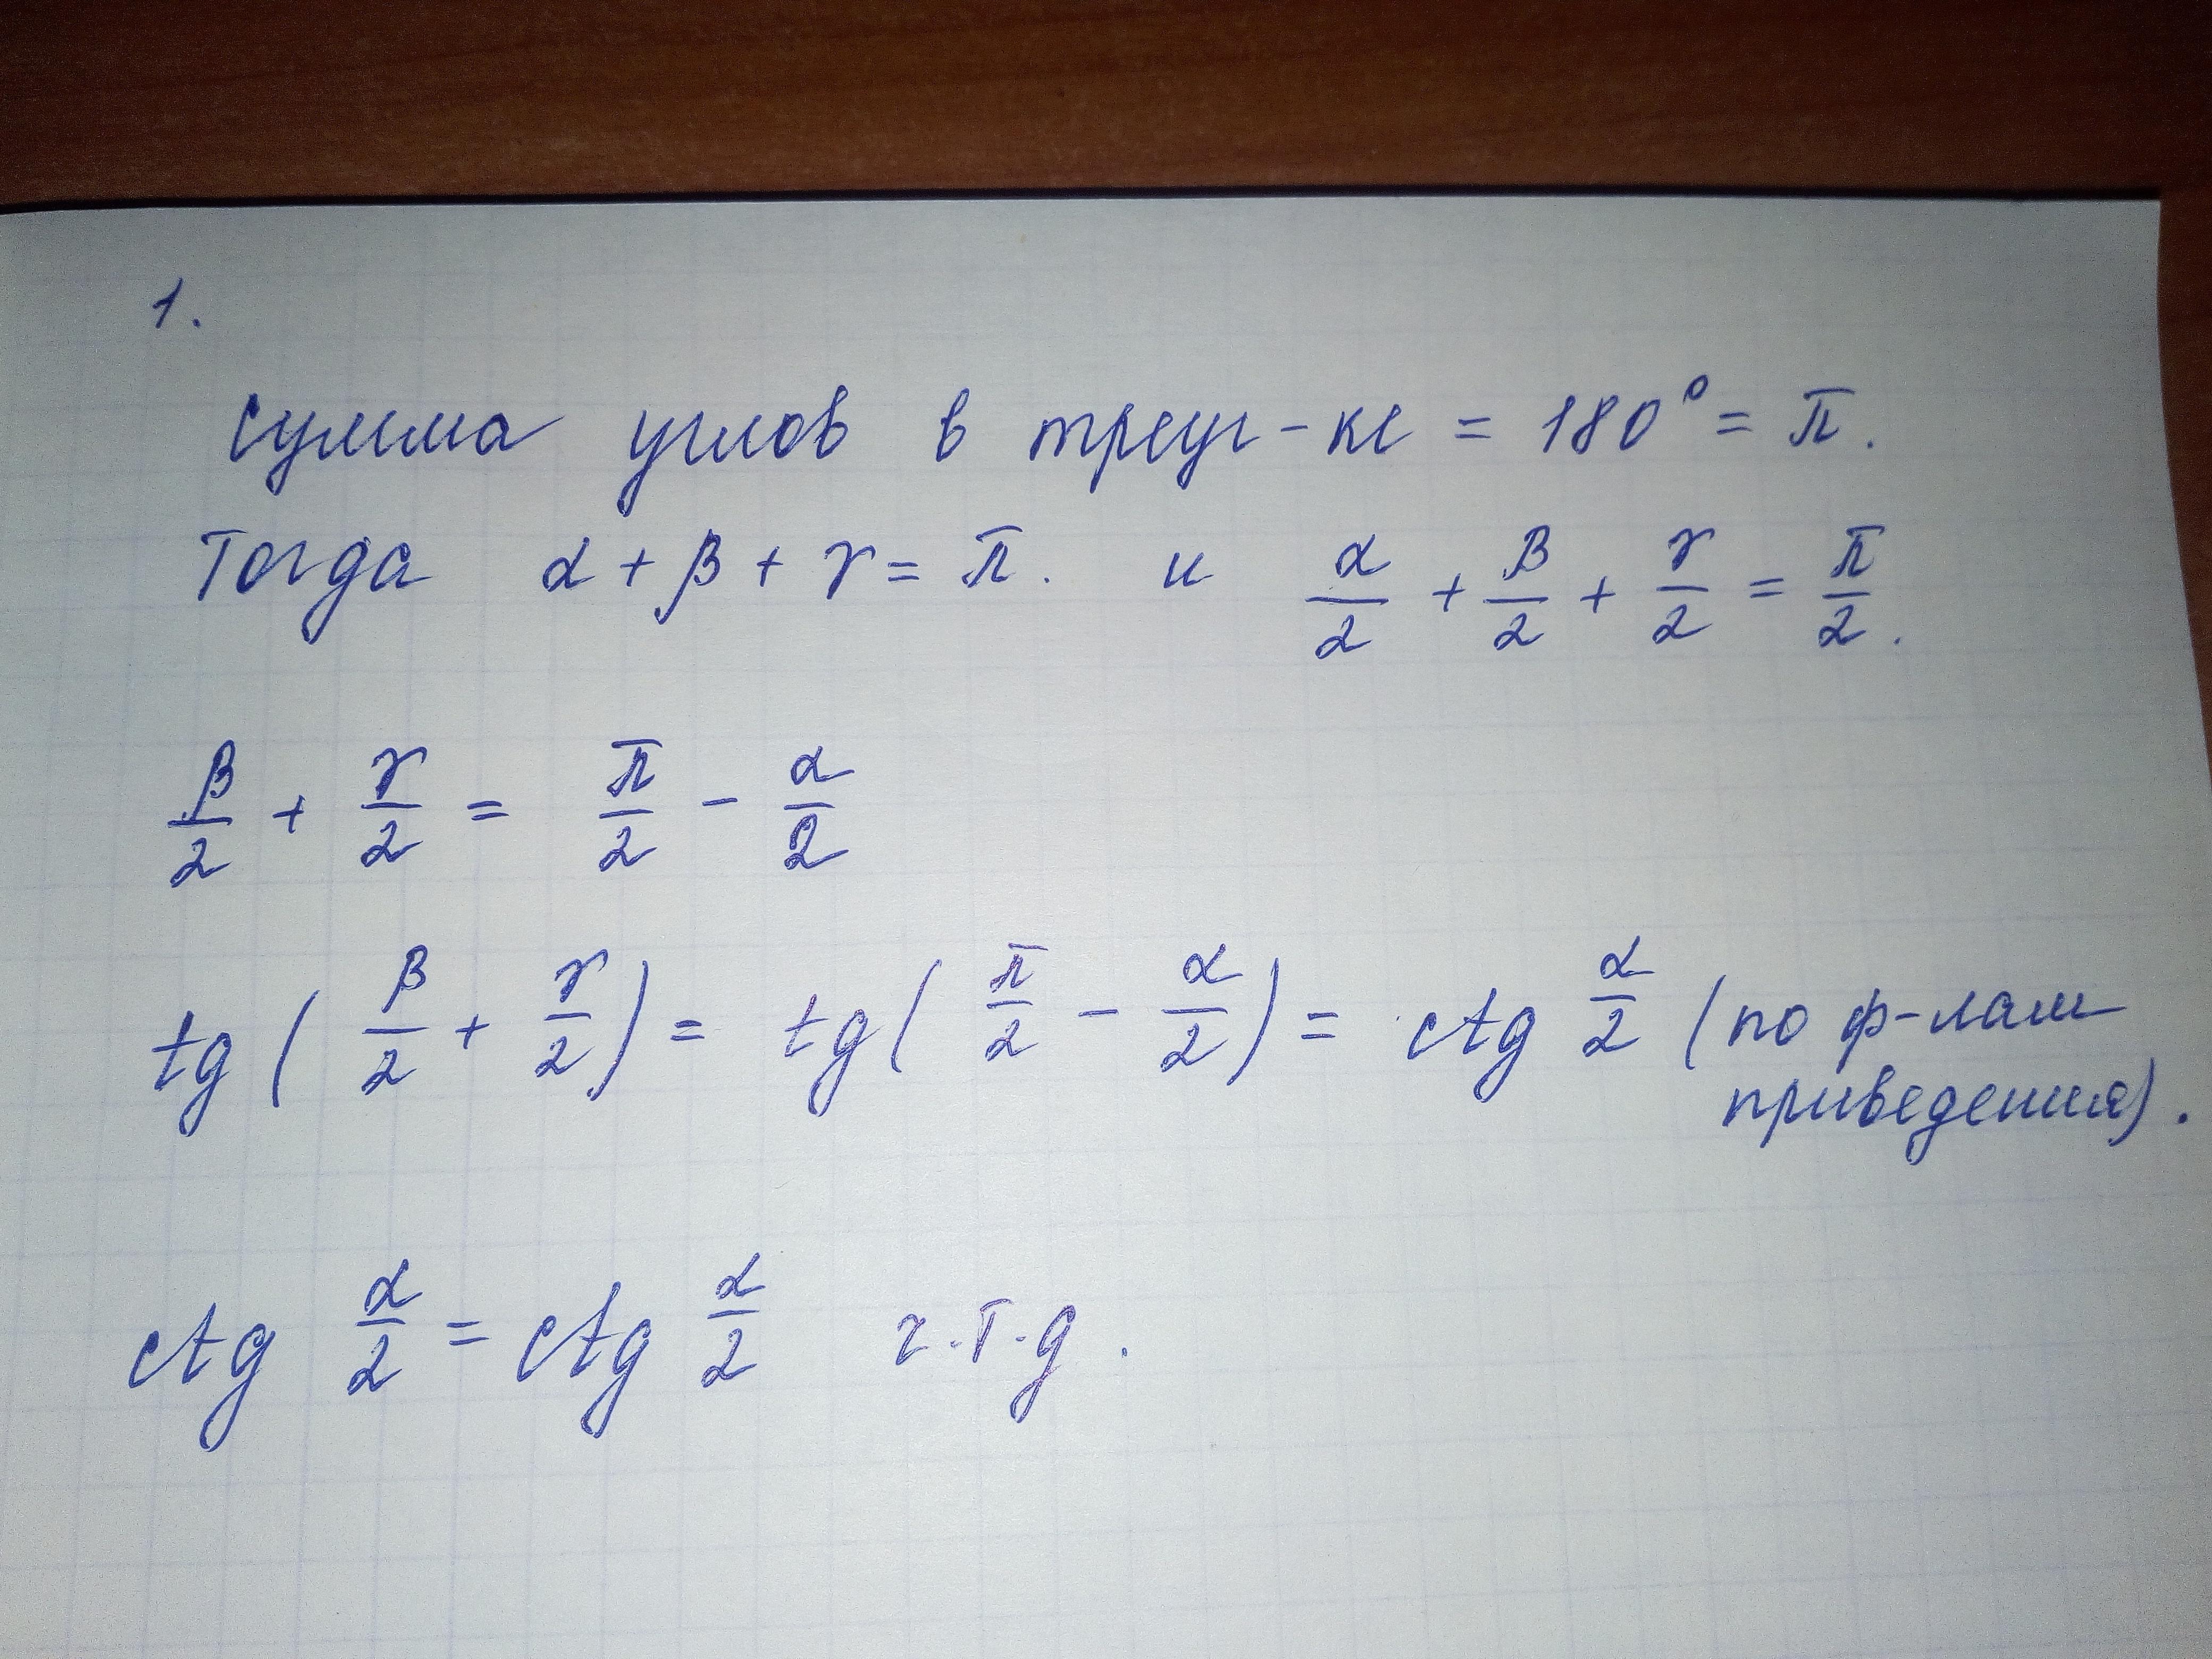 1.
Сумма углов в треуг-ке = 180° = π.
Тогда α + β + γ = π. и α/2 + β/2 + γ/2 = π/2.
β/2 + γ/2 = π/2 - α/2
tg(β/2 + γ/2) = tg(π/2 - α/2) = ctg α/2 (по ф-лам
приведения).
ctg α/2 = ctg α/2 ч.т.д.